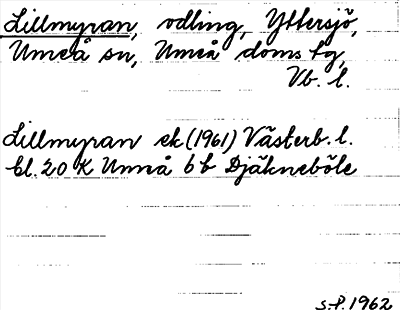 Lillmyran, odling, Yttersjö,
Umeå sn, Umeå doms tg,
Vb. l.
Lillmyran ek (1961) Västerb. l.
bl. 20 K Umeå 6 b Djäkneböle
S.P. 1962